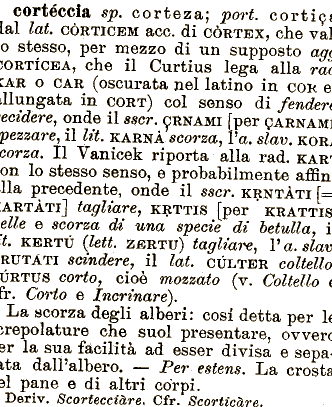 cortéccia sp. corteza; port. cortiça
dal lat. CÒRTICEM acc. di CÒRTEX, che val
lo stesso, per mezzo di un supposto agg
CORTÍCEA, che il Curtius lega alla rad
KAR O CAR (oscurata nel latino in COR e
allungata in CORT) col senso di fendere
recidere, onde il sscr. ÇRNAMI [per ÇARNAMI
spezzare, il lit. KARNÀ scorza, l'a. slav. KORA
scorza. Il Vanicek riporta alla rad. KAR
con lo stesso senso, e probabilmente affin
alla precedente, onde il sscr. KRNTÀTI [=
KARTÀTI] tagliare, KRTTIS [per KRATTIS
pelle e scorza di una specie di betulla, i
lit. KERTÚ (lett. ZERTU) tagliare, l'a. slav
KRUTÁTI scindere, il lat. CÚLTER coltello
CÚRTUS corto, cioè mozzato (v. Coltello e
cfr. Corto e Incrinare).
La scorza degli alberi: cosí detta per le
crepolature che suol presentare, ovvero
per la sua facilità ad esser divisa e sepa-
rata dall'albero. — Per estens. La crosta
del pane e di altri corpi.
Deriv. Scortecciàre. Cfr. Scorticàre.